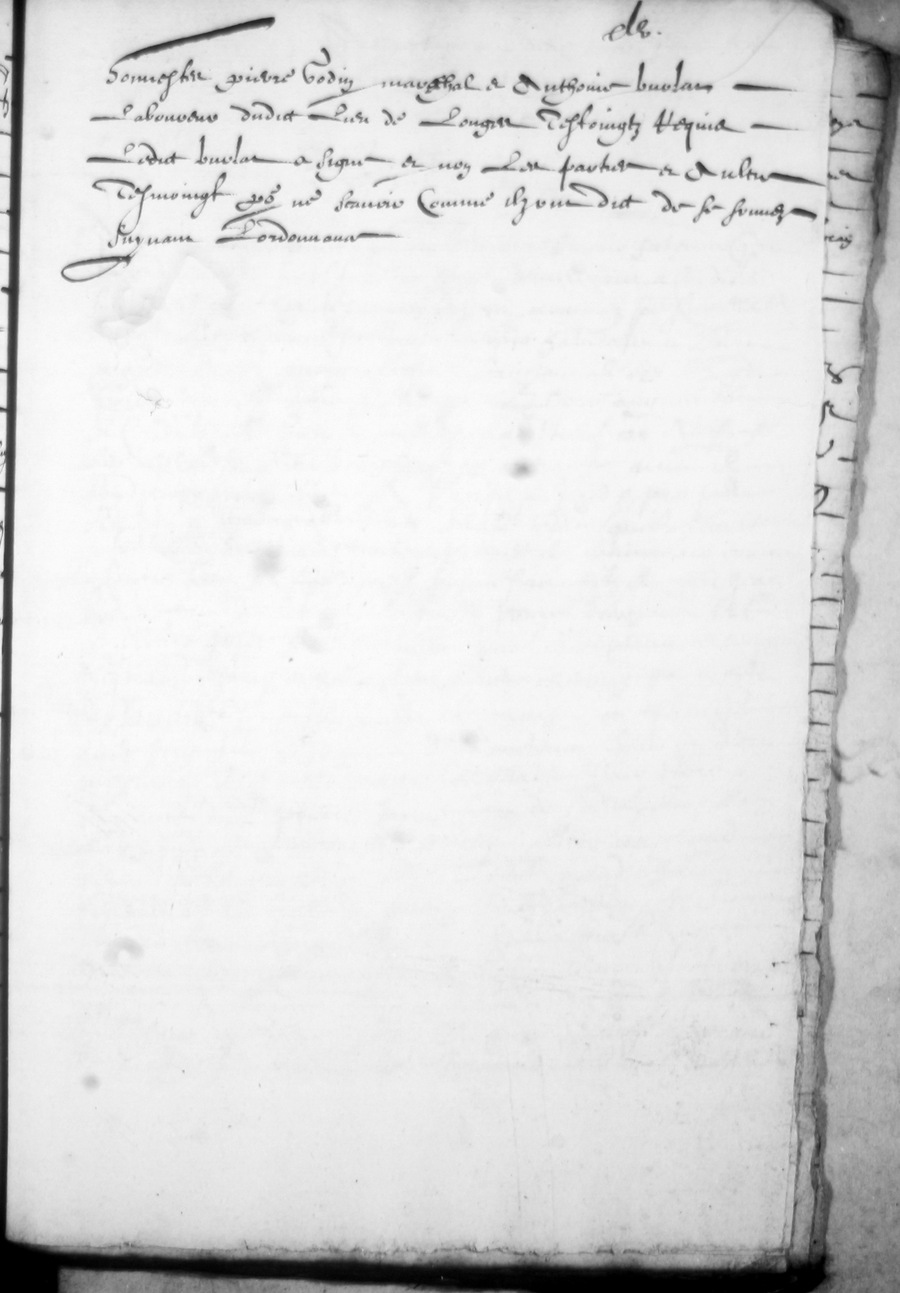 honnestes pierre Godin mareschal et Anthoine burlat
Laboureur dudict Lieu de Longes Tesmoingtz Requis
Ledict burlat a signe et non Les parties et Aultre
Tesmoingt po ne scavoir Comme ilz ont dict de ce sommez
suyvant Lordonnance